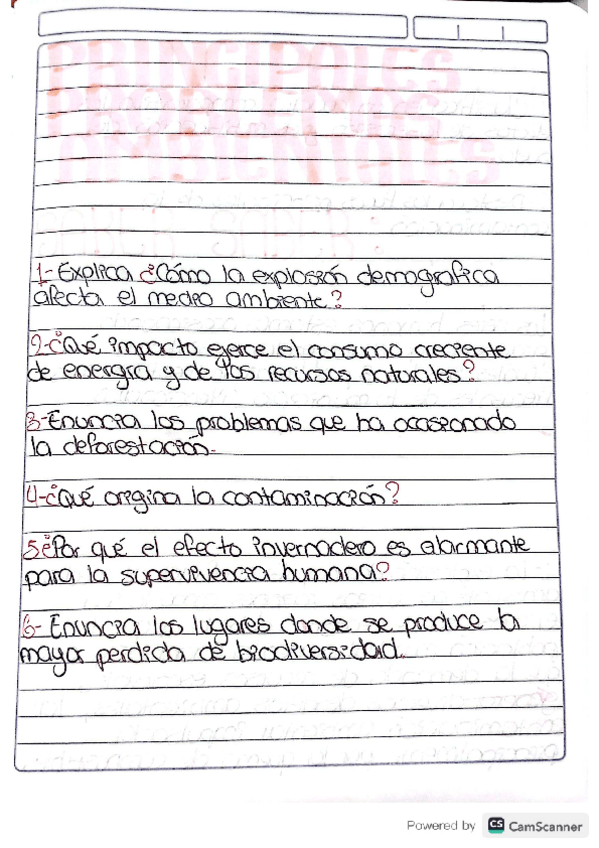 PRINCIPALES
PROBLEMAS
AMBIENTALES
1- Explica ¿Cómo la explosión demografica
afecta el medio ambiente?
2-¿Qué impacto ejerce el consumo creciente
de energía y de los recursos naturales?
3-Enuncia los problemas que ha ocasionado
la deforestación.
4-¿Qué origina la contaminación?
5¿Por qué el efecto invernadero es alarmante
para la supervivencia humana?
6- Enuncia los lugares donde se produce la
mayor perdida de biodiversidad.
Powered by CS CamScanner